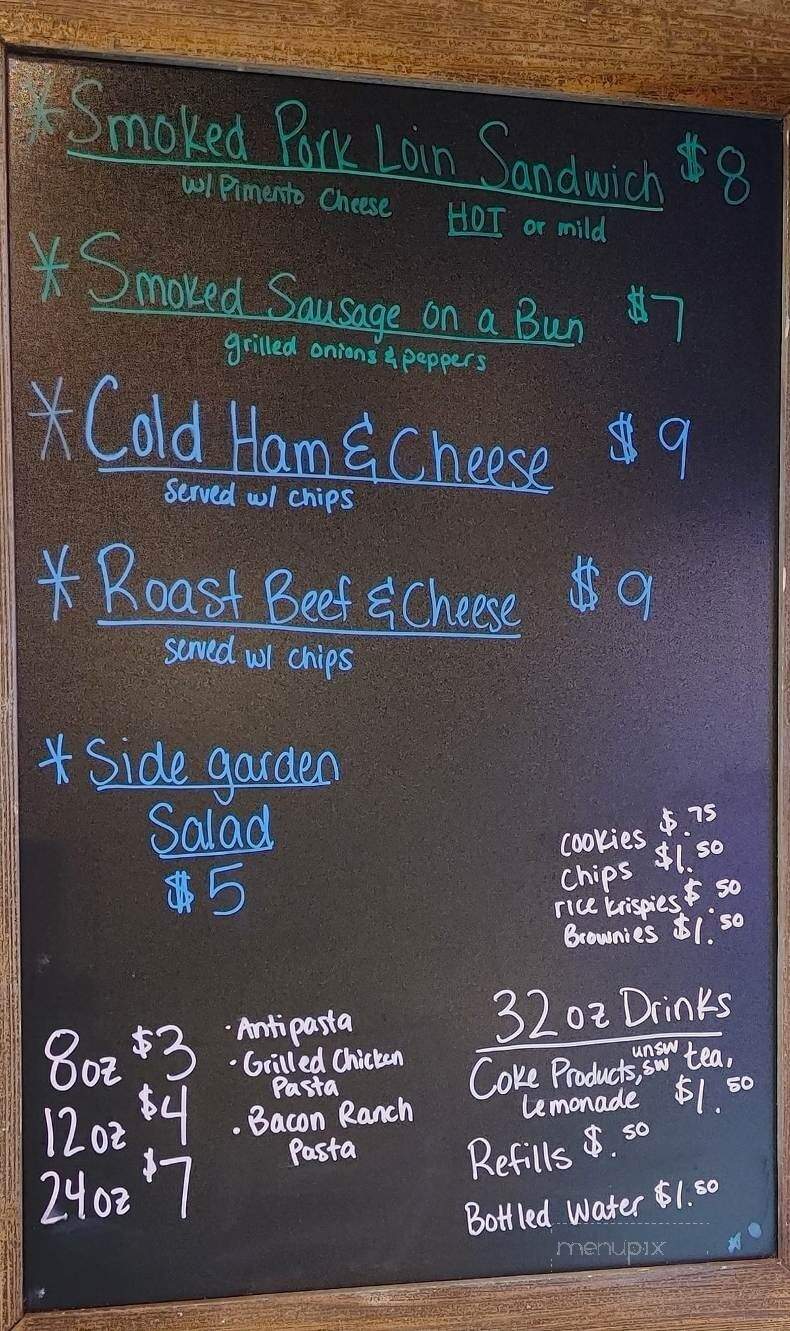 * Smoked Pork Loin Sandwich $8
w/ Pimento Cheese HOT or mild
* Smoked Sausage on a Bun $7
grilled onions & peppers
* Cold Ham & Cheese $9
served w/ chips
* Roast Beef & Cheese $9
served w/ chips
* Side garden
Salad
$5
cookies $.75
chips $1.50
rice krispies $.50
Brownies $1.50
8oz $3
12oz $4
24oz $7
· Antipasta
· Grilled Chicken
Pasta
· Bacon Ranch
Pasta
32 oz Drinks
Coke Products, unsw sw tea,
Lemonade $1.50
Refills $.50
Bottled Water $1.50
menupix